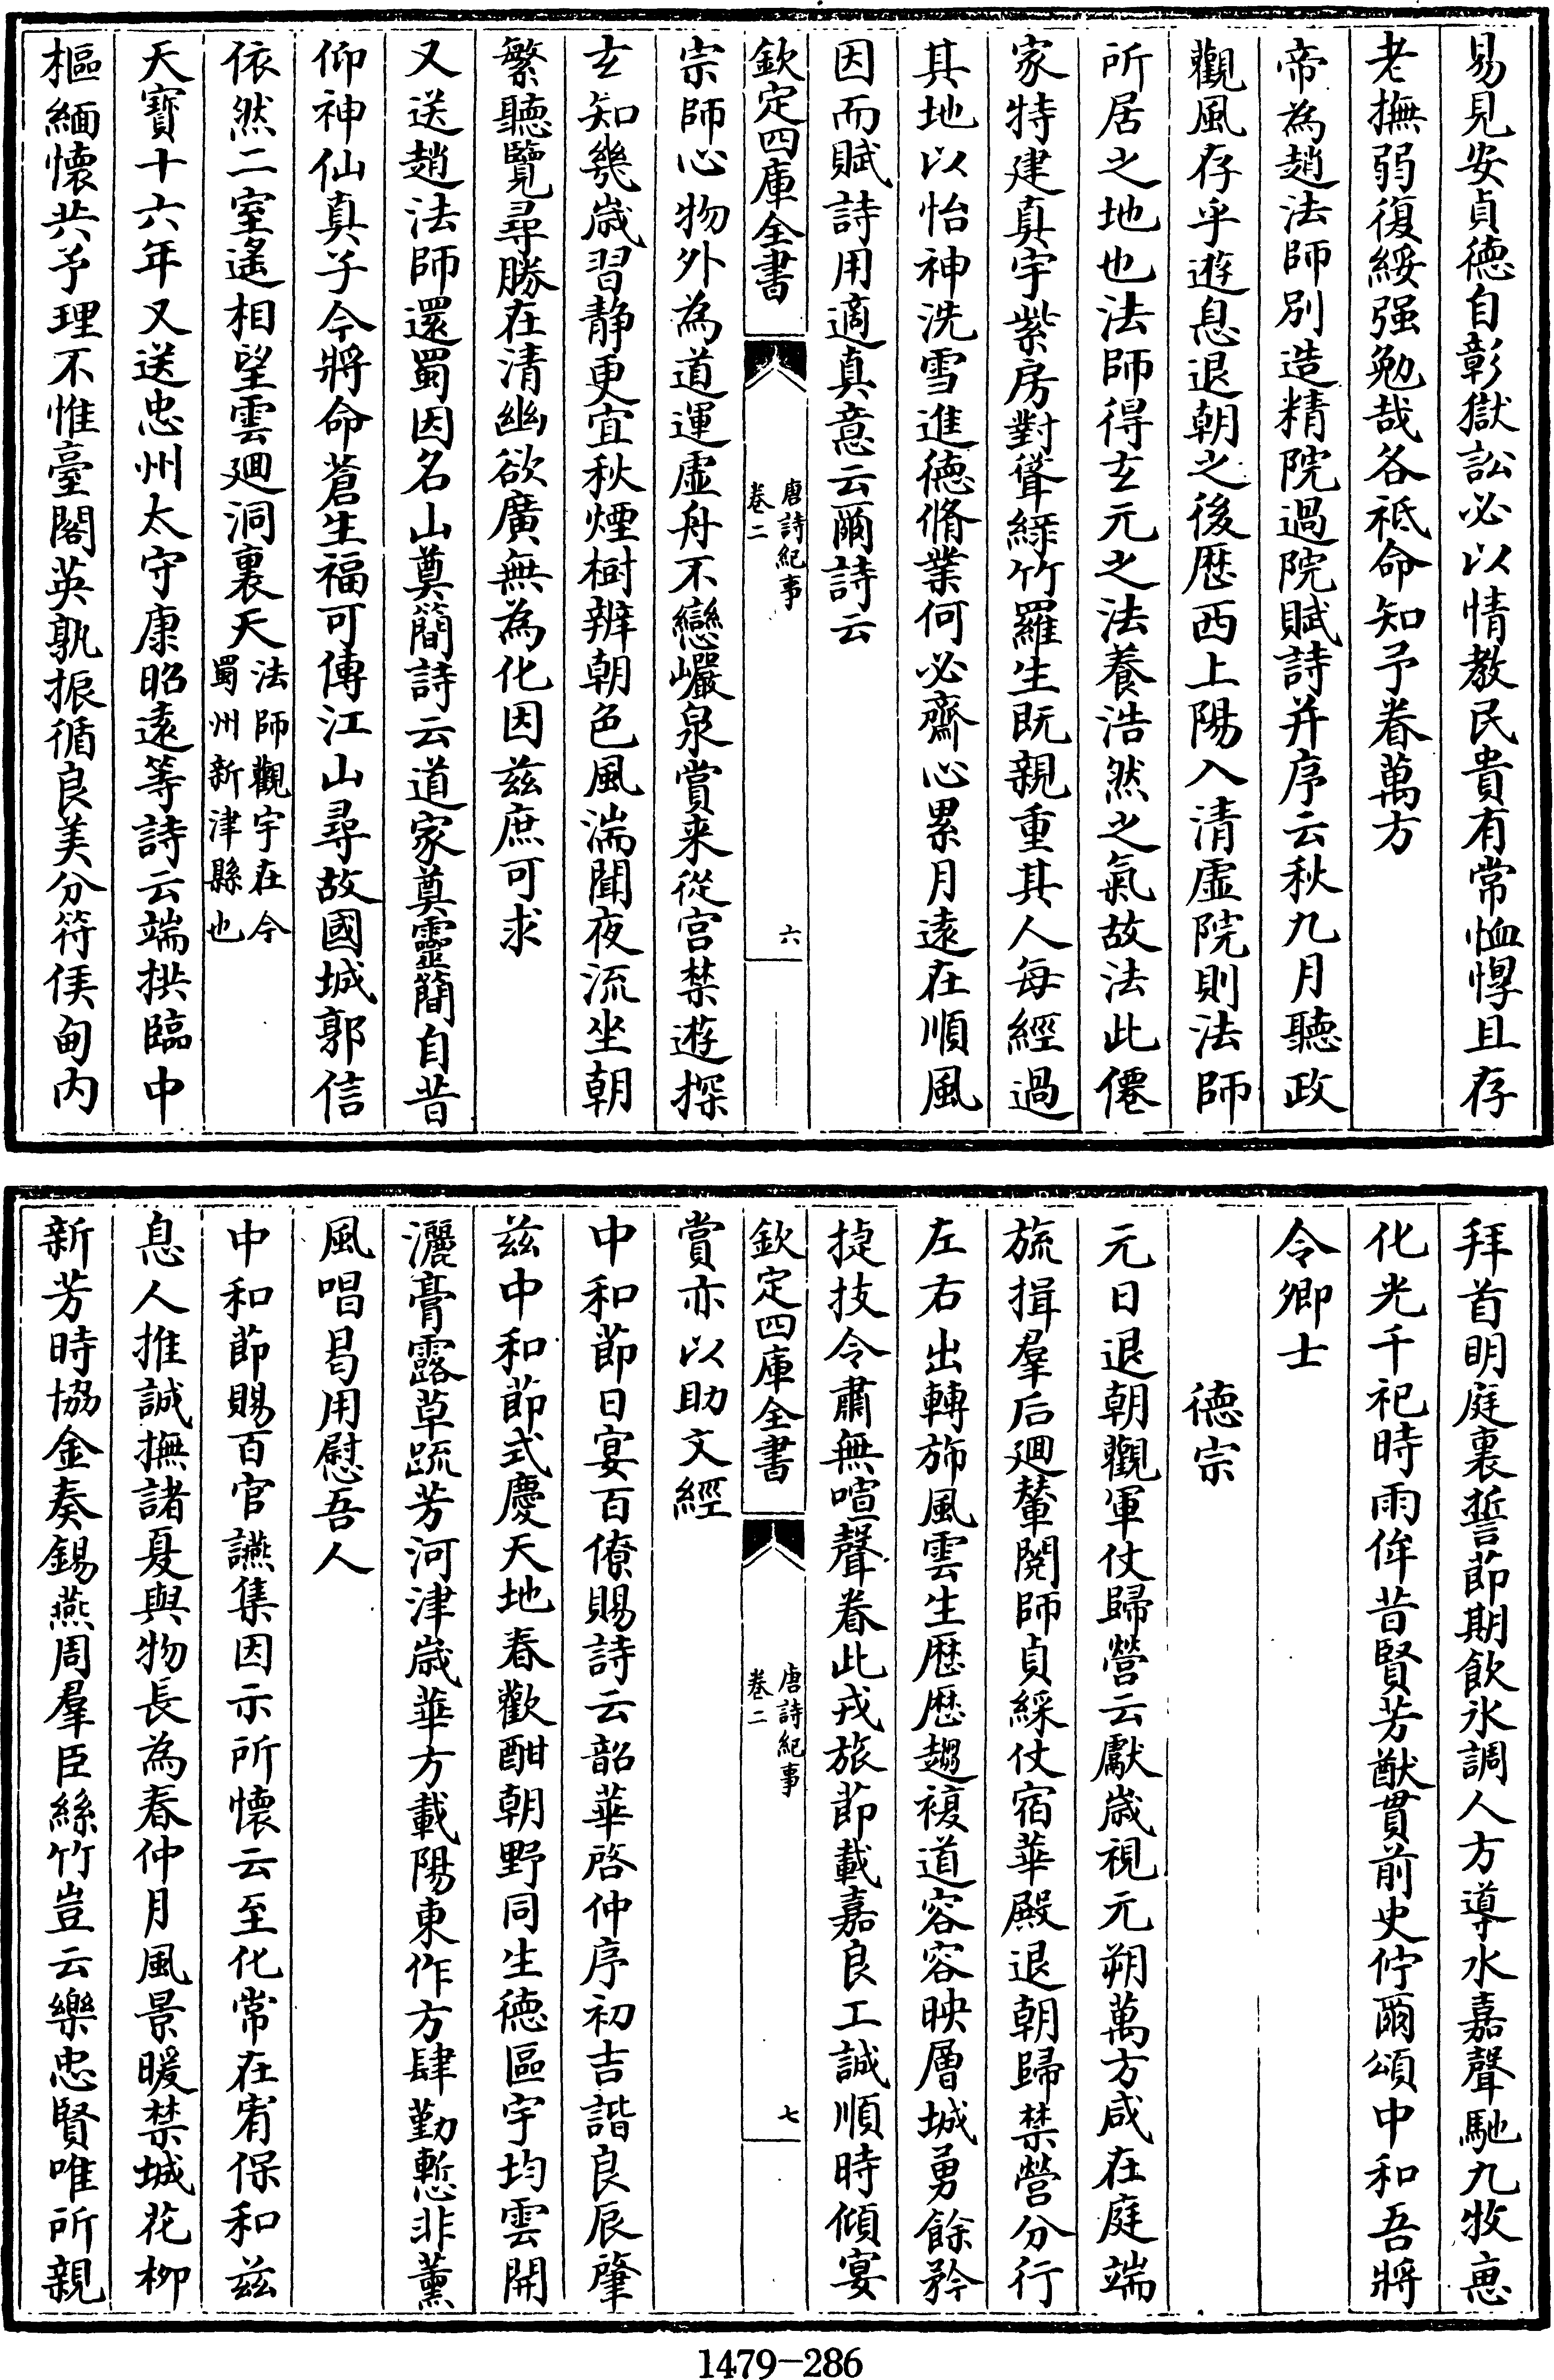 易見安貞徳自彰獄訟必以情教民貴有常恤惸且存
老撫弱復綏强勉哉各祗命知予眷萬方
帝為趙法師別造精院過院賦詩并序云秋九月聽政
觀風存乎遊息退朝之後歴西上陽入清虛院則法師
所居之地也法師得玄元之法養浩然之氣故法此僊
家特建真宇紫房對聳綠竹羅生既親重其人每經過
其地以怡神洗雪進徳脩業何必齋心累月遠在順風
因而賦詩用適真意云爾詩云
欽定四庫全書
唐詩紀事
卷二
六
宗師心物外為道運虛舟不戀巖泉賞来從宫禁遊探
玄知幾歳習静更宜秋煙樹辨朝色風湍聞夜流坐朝
繁聽覽尋勝在清幽欲廣無為化因兹庶可求
又送趙法師還蜀因名山奠簡詩云道家奠靈簡自昔
仰神仙真子今將命蒼生福可傳江山尋故國城郭信
依然二室遙相望雲廻洞裏天法師觀宇在今
蜀州新津縣也
天寳十六年又送忠州太守康昭遠等詩云端拱臨中
樞緬懷共予理不惟臺閣英孰振循良美分符侯甸内
拜首明庭裏誓節期飲氷調人方導水嘉聲馳九牧恵
化光千祀時雨侔昔賢芳猷貫前史佇爾頌中和吾將
令卿士
徳宗
元日退朝觀軍仗歸營云獻歳視元朔萬方咸在庭端
旒揖羣后廻輦閲師貞綵仗宿華殿退朝歸禁營分行
左右出轉斾風雲生歴歴趨複道容容映層城勇餘矜
捷技令肅無喧聲眷此戎旅節載嘉良工誠順時傾宴
欽定四庫全書
唐詩紀事
卷二
七
賞亦以助文經
中和節日宴百僚賜詩云韶華啓仲序初吉諧良辰肇
兹中和節式慶天地春歡酣朝野同生徳區宇均雲開
灑膏露草疏芳河津歳華方載陽東作方肆勤慙非薰
風唱曷用慰吾人
中和節賜百官讌集因示所懷云至化常在宥保和兹
息人推誠撫諸夏與物長為春仲月風景暖禁城花柳
新芳時協金奏錫燕周羣臣絲竹豈云樂忠賢唯所親
1479-286